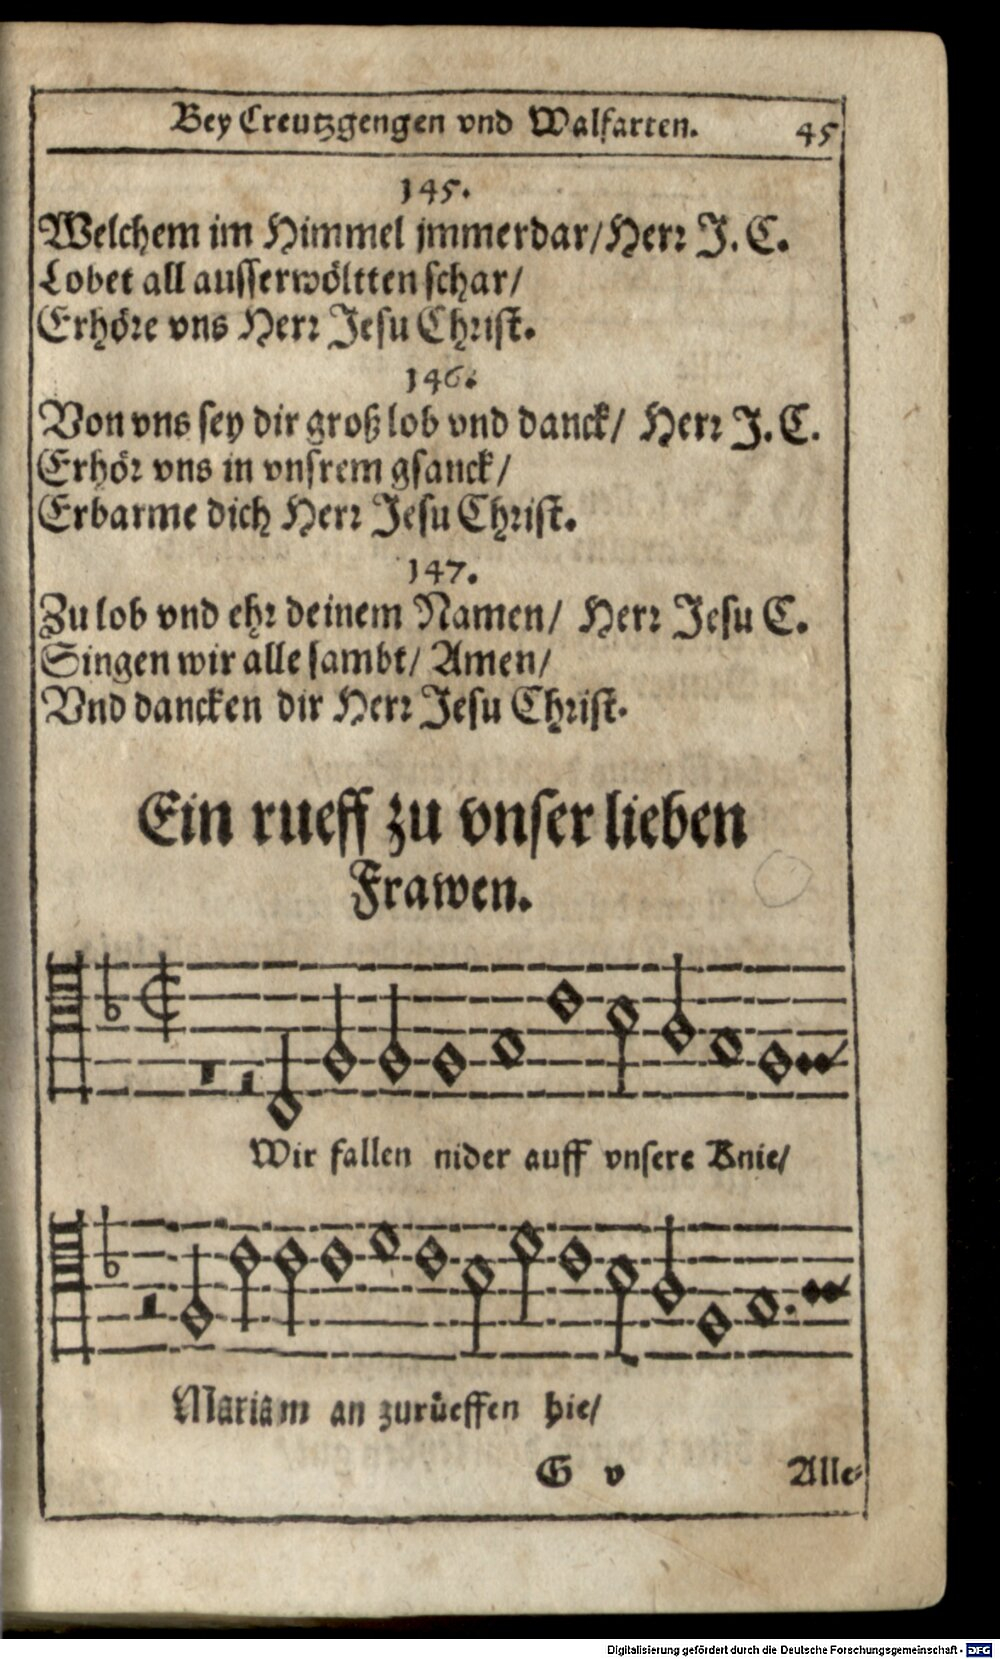 Bey Creutzgengen vnd Walfarten. 45
145.
Welchem im Himmel jmmerdar/ Herr J. C.
Lobet all ausserwöltten schar/
Erhöre vns Herr Jesu Christ.
146.
Von vns sey dir groß lob vnd danck/ Herr J. C.
Erhör vns in vnsrem gsanck/
Erbarme dich Herr Jesu Christ.
147.
Zu lob vnd ehr deinem Namen/ Herr Jesu C.
Singen wir alle sambt/ Amen/
Vnd dancken dir Herr Jesu Christ.
Ein rueff zu vnser lieben
Frawen.
Wir fallen nider auff vnsere Knie/
Mariam an zurüeffen hie/
G v Alle-
Digitalisierung gefördert durch die Deutsche Forschungsgemeinschaft - DFG